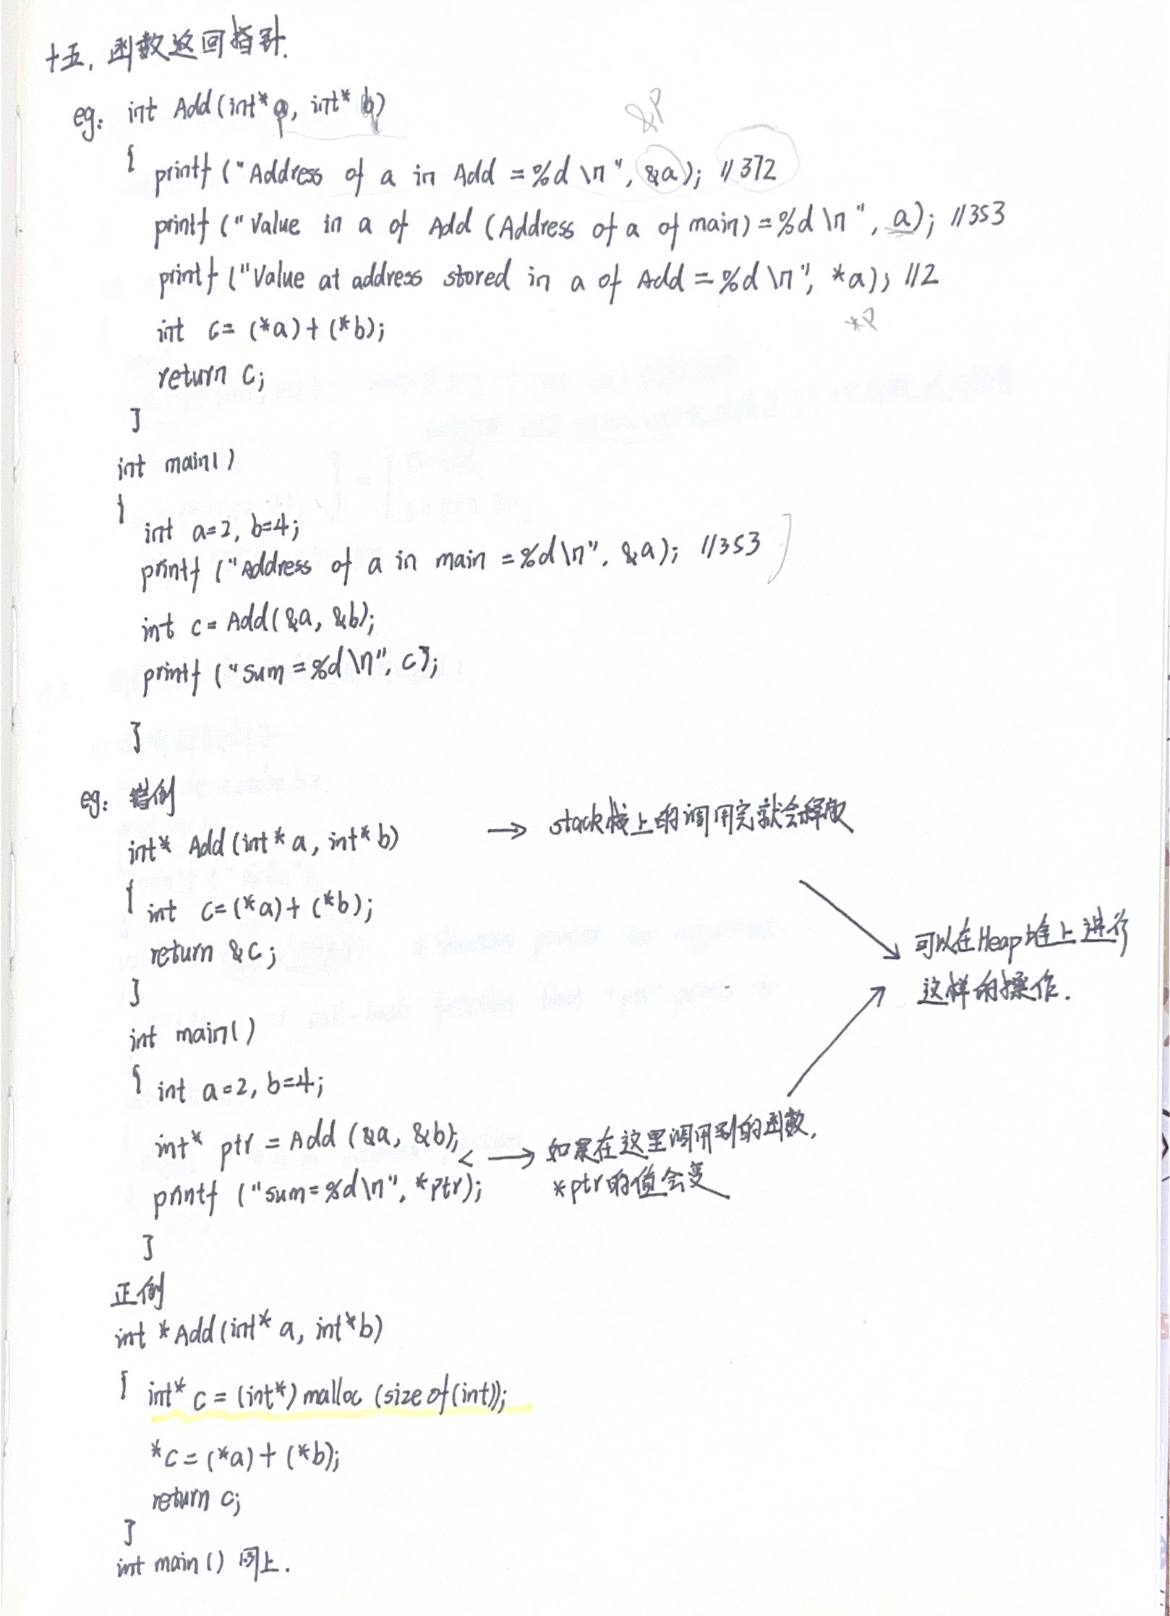 十五. 函数返回指针.
eg: int Add(int* p, int* q)
&P
{ printf ("Address of a in Add =%d \n", &a); //372
printf ("Value in a of Add (Address of a of main)=%d \n", a); //353
printf ("Value at address stored in a of Add =%d \n", *a); //2
*P
int c= (*a)+(*b);
return c;
}
int main()
{
int a=2, b=4;
printf ("Address of a in main =%d\n", &a); //353
int c=Add(&a, &b);
printf ("sum=%d\n", c);
}
eg: 错例
int* Add(int* a, int* b) → stack栈上的调用完就会释放
{ int c=(*a)+(*b);
return &c;
}
可以在Heap堆上进行
这样的操作.
int main()
{ int a=2, b=4;
int* ptr = Add (&a, &b);
< → 如果在这里调用别的函数,
printf ("sum=%d\n", *ptr); *ptr的值会变
}
正例
int *Add(int* a, int*b)
{ int* c = (int*) malloc (sizeof(int));
*c = (*a)+(*b);
return c;
}
int main() 同上.